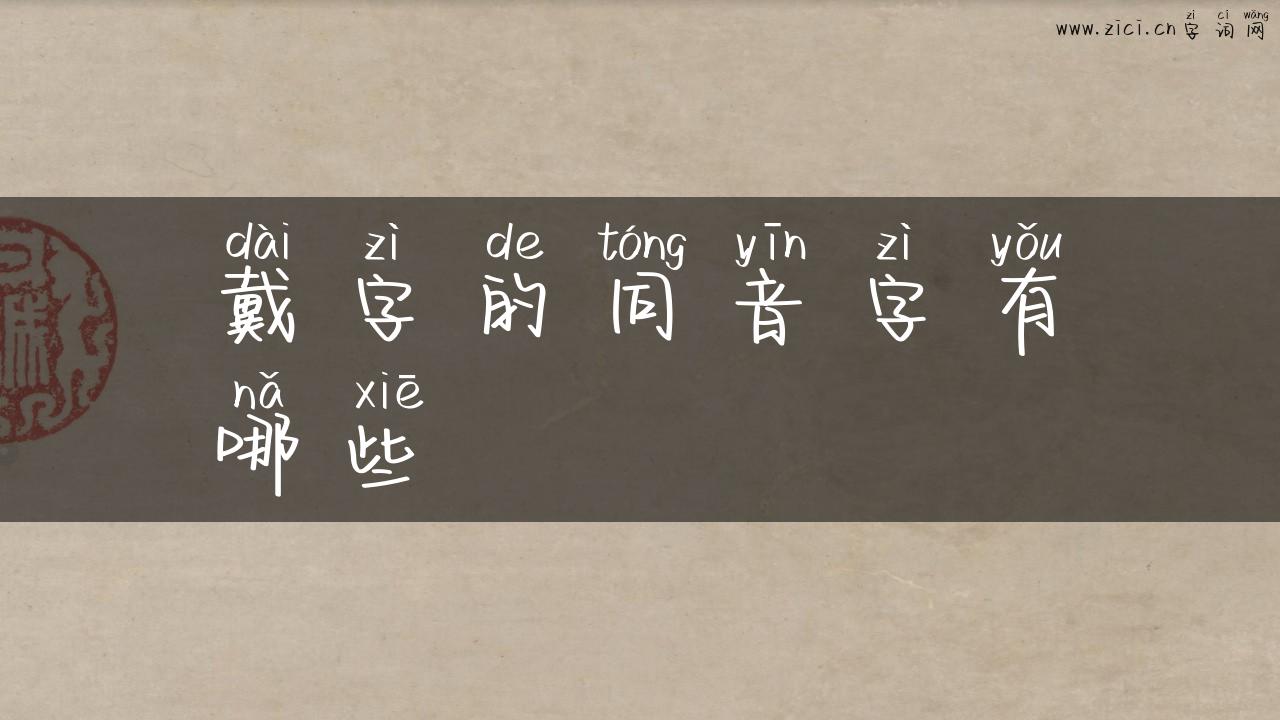 zì cí wǎng
www.zici.cn 字词网
dài zì de tóng yīn zì yǒu
戴字的同音字有
nǎ xiē
哪些